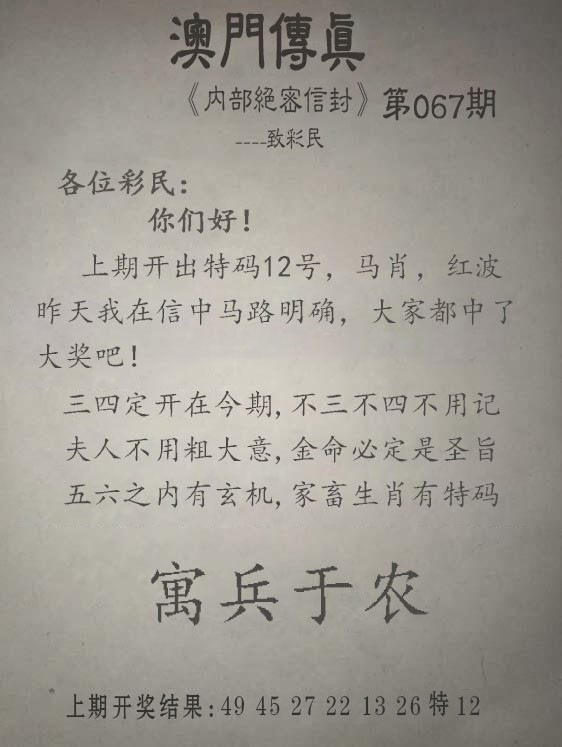 澳門傳真
《内部絕密信封》第067期
----致彩民
各位彩民:
你们好!
上期开出特码12号,马肖,红波
昨天我在信中马路明确,大家都中了
大奖吧!
三四定开在今期,不三不四不用记
夫人不用粗大意,金命必定是圣旨
五六之内有玄机,家畜生肖有特码
寓兵于农
上期开奖结果:49 45 27 22 13 26 特 12